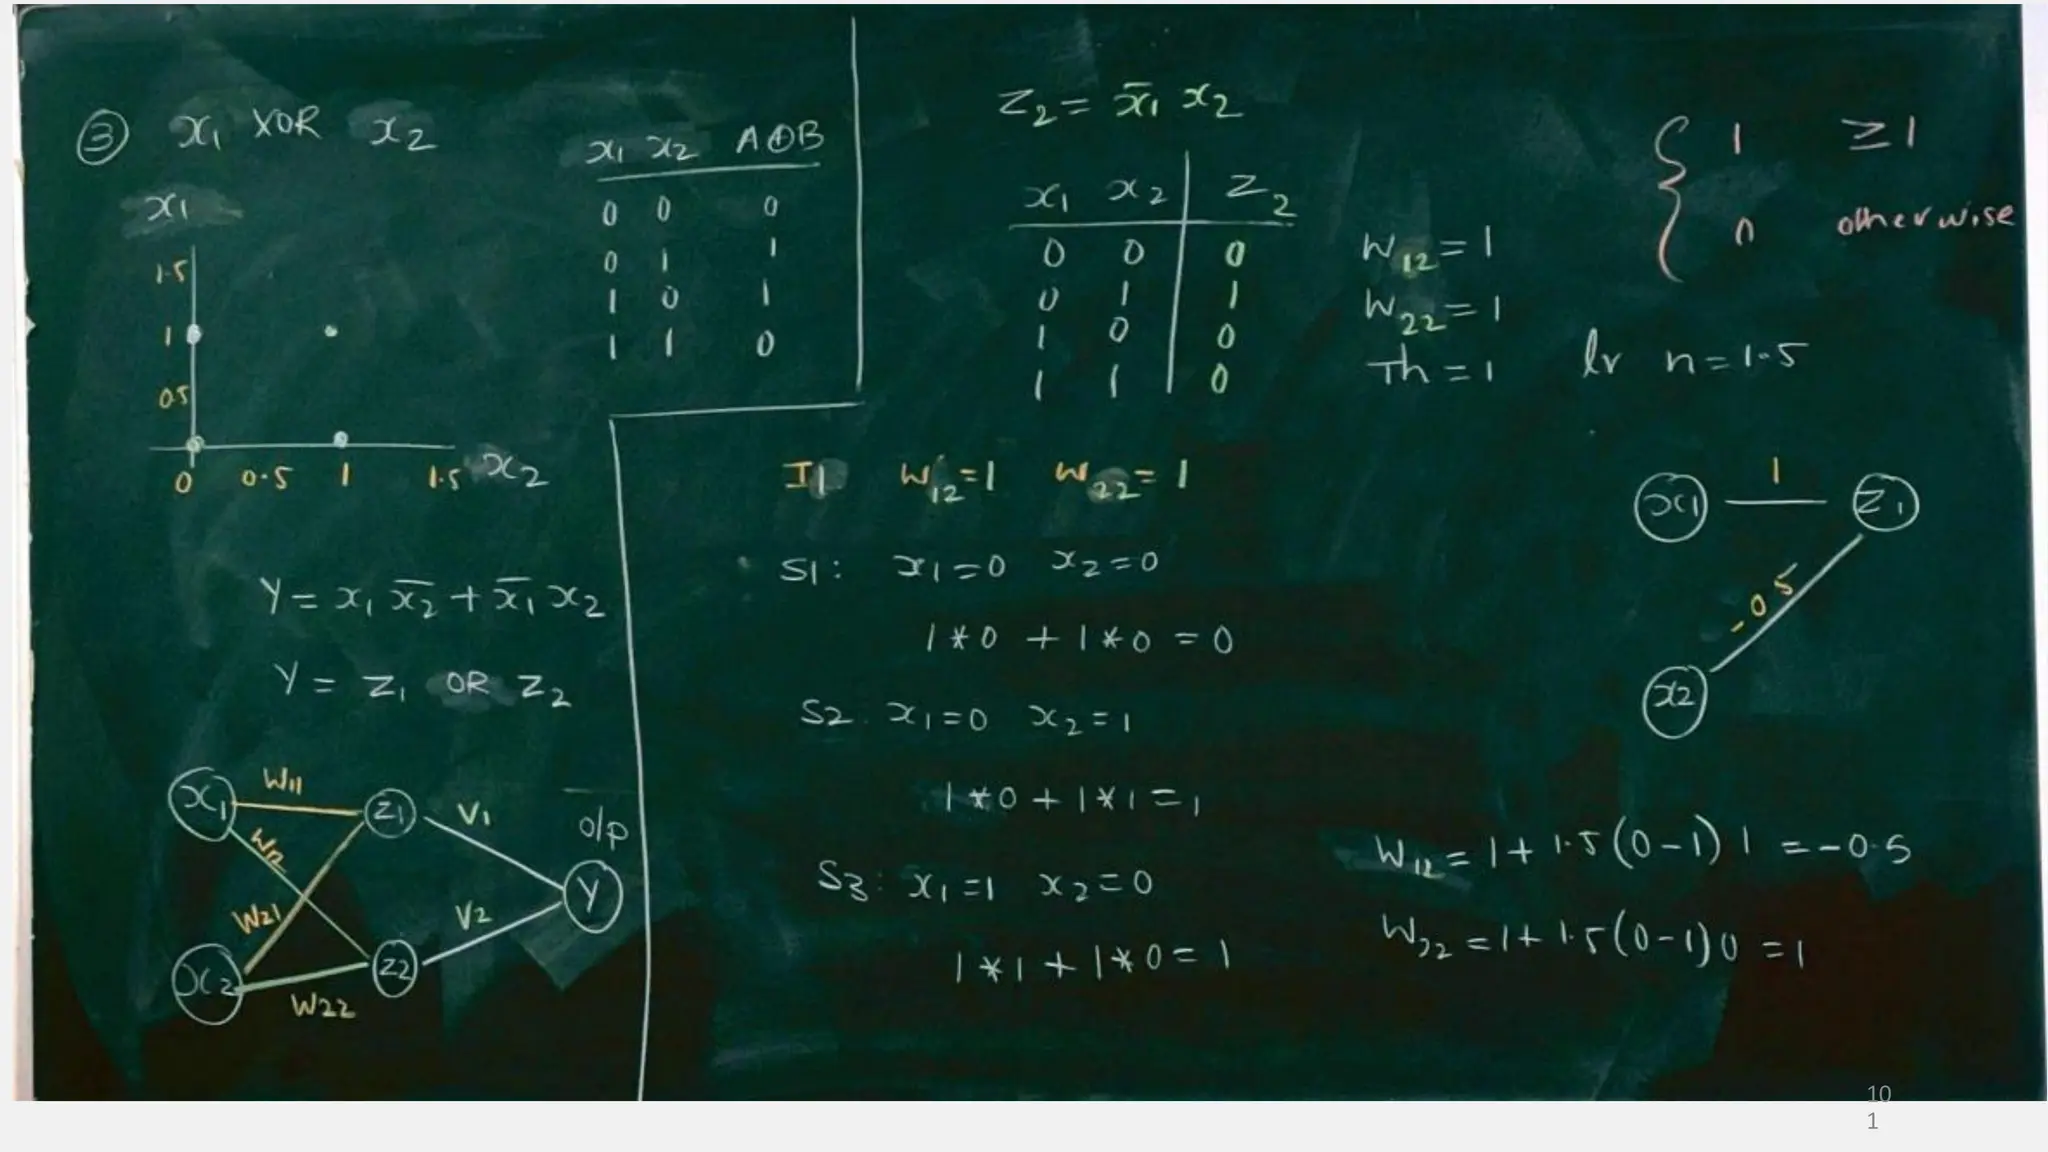 ③ x₁ XOR x₂
x₁ x₂ A⊕B
0 0 0
0 1 1
1 0 1
1 1 0
x₁
1.5
1
0.5
0 0.5 1 1.5 x₂
Y = x₁ x̄₂ + x̄₁ x₂
Y = z₁ OR z₂
x₁ W11 z₁ V1
W12
o/p
Y
W21 V2
x₂ W22 z₂
Z₂ = x̄₁ x₂
x₁ x₂ Z₂
0 0 0
0 1 1
1 0 0
1 1 0
W₁₂ = 1
W₂₂ = 1
Th = 1
lr n = 1.5
1 ≥ 1
0 otherwise
I1 W₁₂ = 1 W₂₂ = 1
S1: x₁ = 0 x₂ = 0
1 * 0 + 1 * 0 = 0
S2: x₁ = 0 x₂ = 1
1 * 0 + 1 * 1 = 1
S3: x₁ = 1 x₂ = 0
1 * 1 + 1 * 0 = 1
x1 1 z1
-0.5
x2
W₁₂ = 1 + 1.5 (0 - 1) 1 = -0.5
W₂₂ = 1 + 1.5 (0 - 1) 0 = 1
10
1